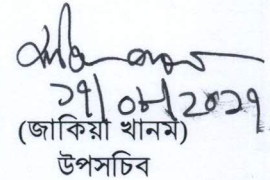 ১৭/০৮/২০১৭
(জাকিয়া খানম)
উপসচিব